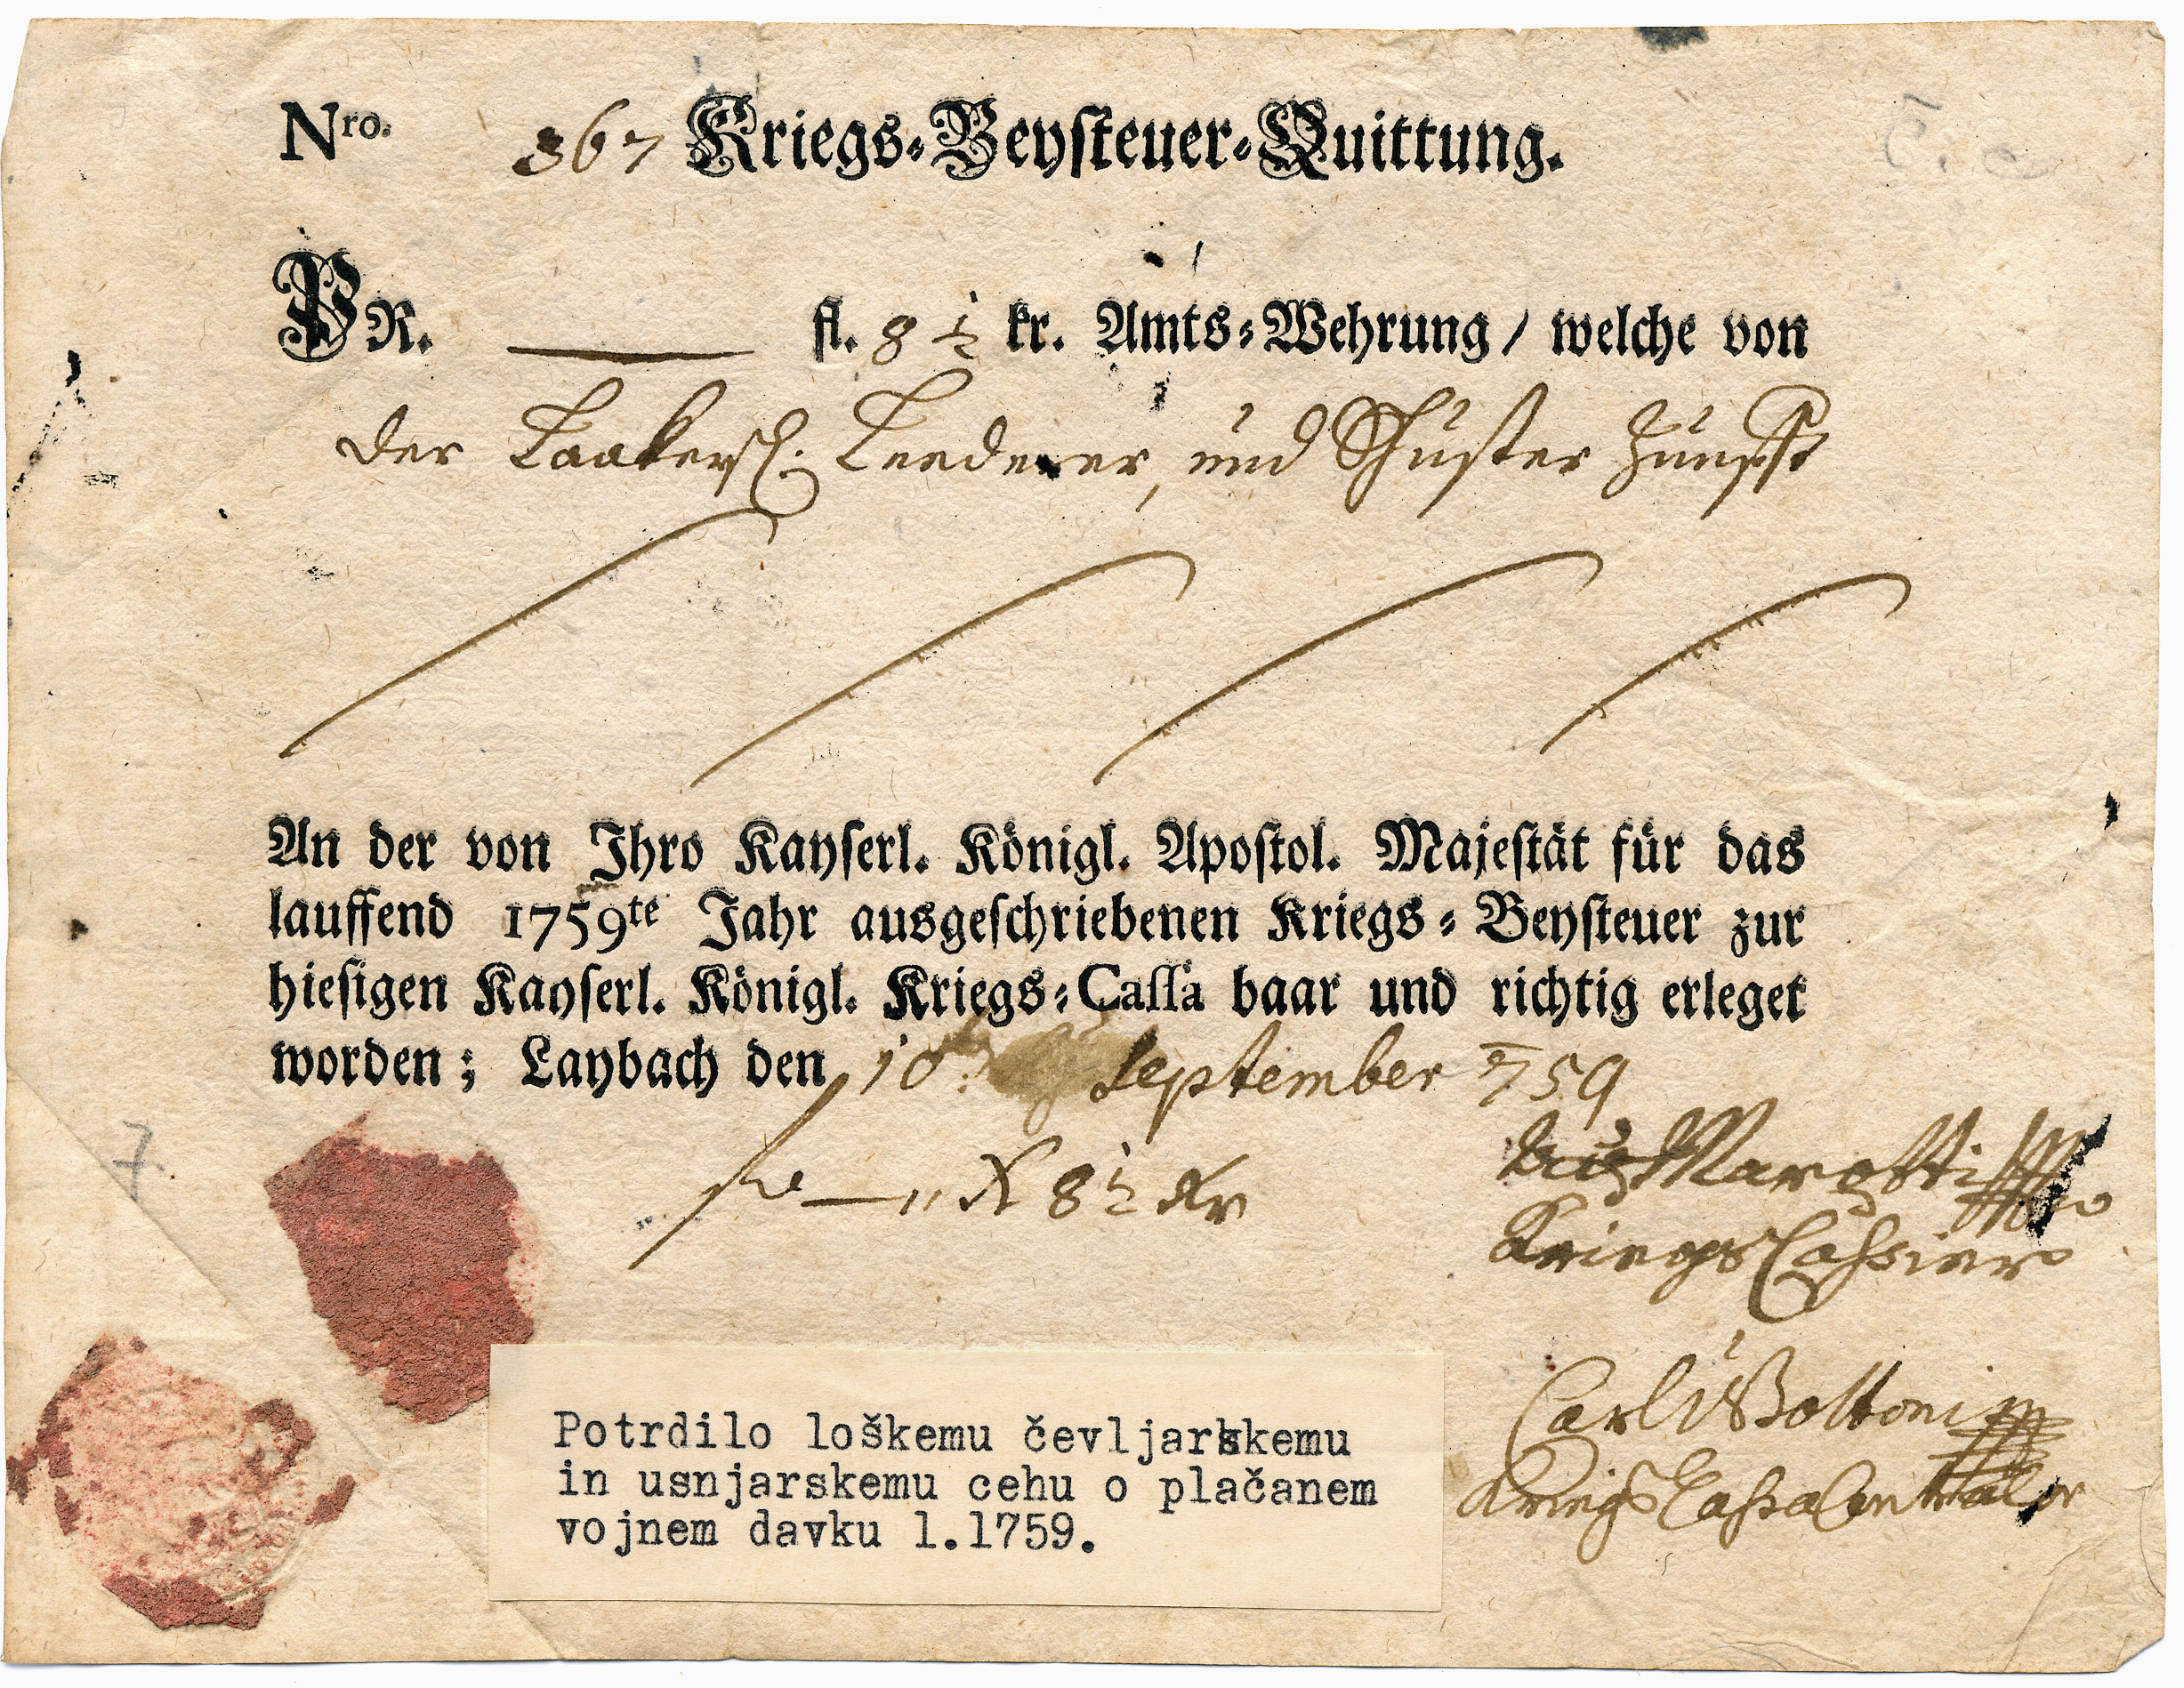 Nro. 367 Kriegs-Beysteuer-Quittung.
PR. fl. 8 ½ kr. Amts-Wehrung / welche von
der Laakersch. Leederer, und Schuster Zunfft
An der von Ihro Kayserl. Königl. Apostol. Majestät für das
lauffend 1759te Jahr ausgeschriebenen Kriegs-Beysteuer zur
hiesigen Kayserl. Königl. Kriegs-Cassa baar und richtig erleget
worden; Laybach den 10. September 759
8½ Kr
Marotti
Kriegs Cassier
Carl
Kriegs Cassa Controlor
7.
Potrdilo loškemu čevljarskemu
in usnjarskemu cehu o plačanem
vojnem davku l.1759.